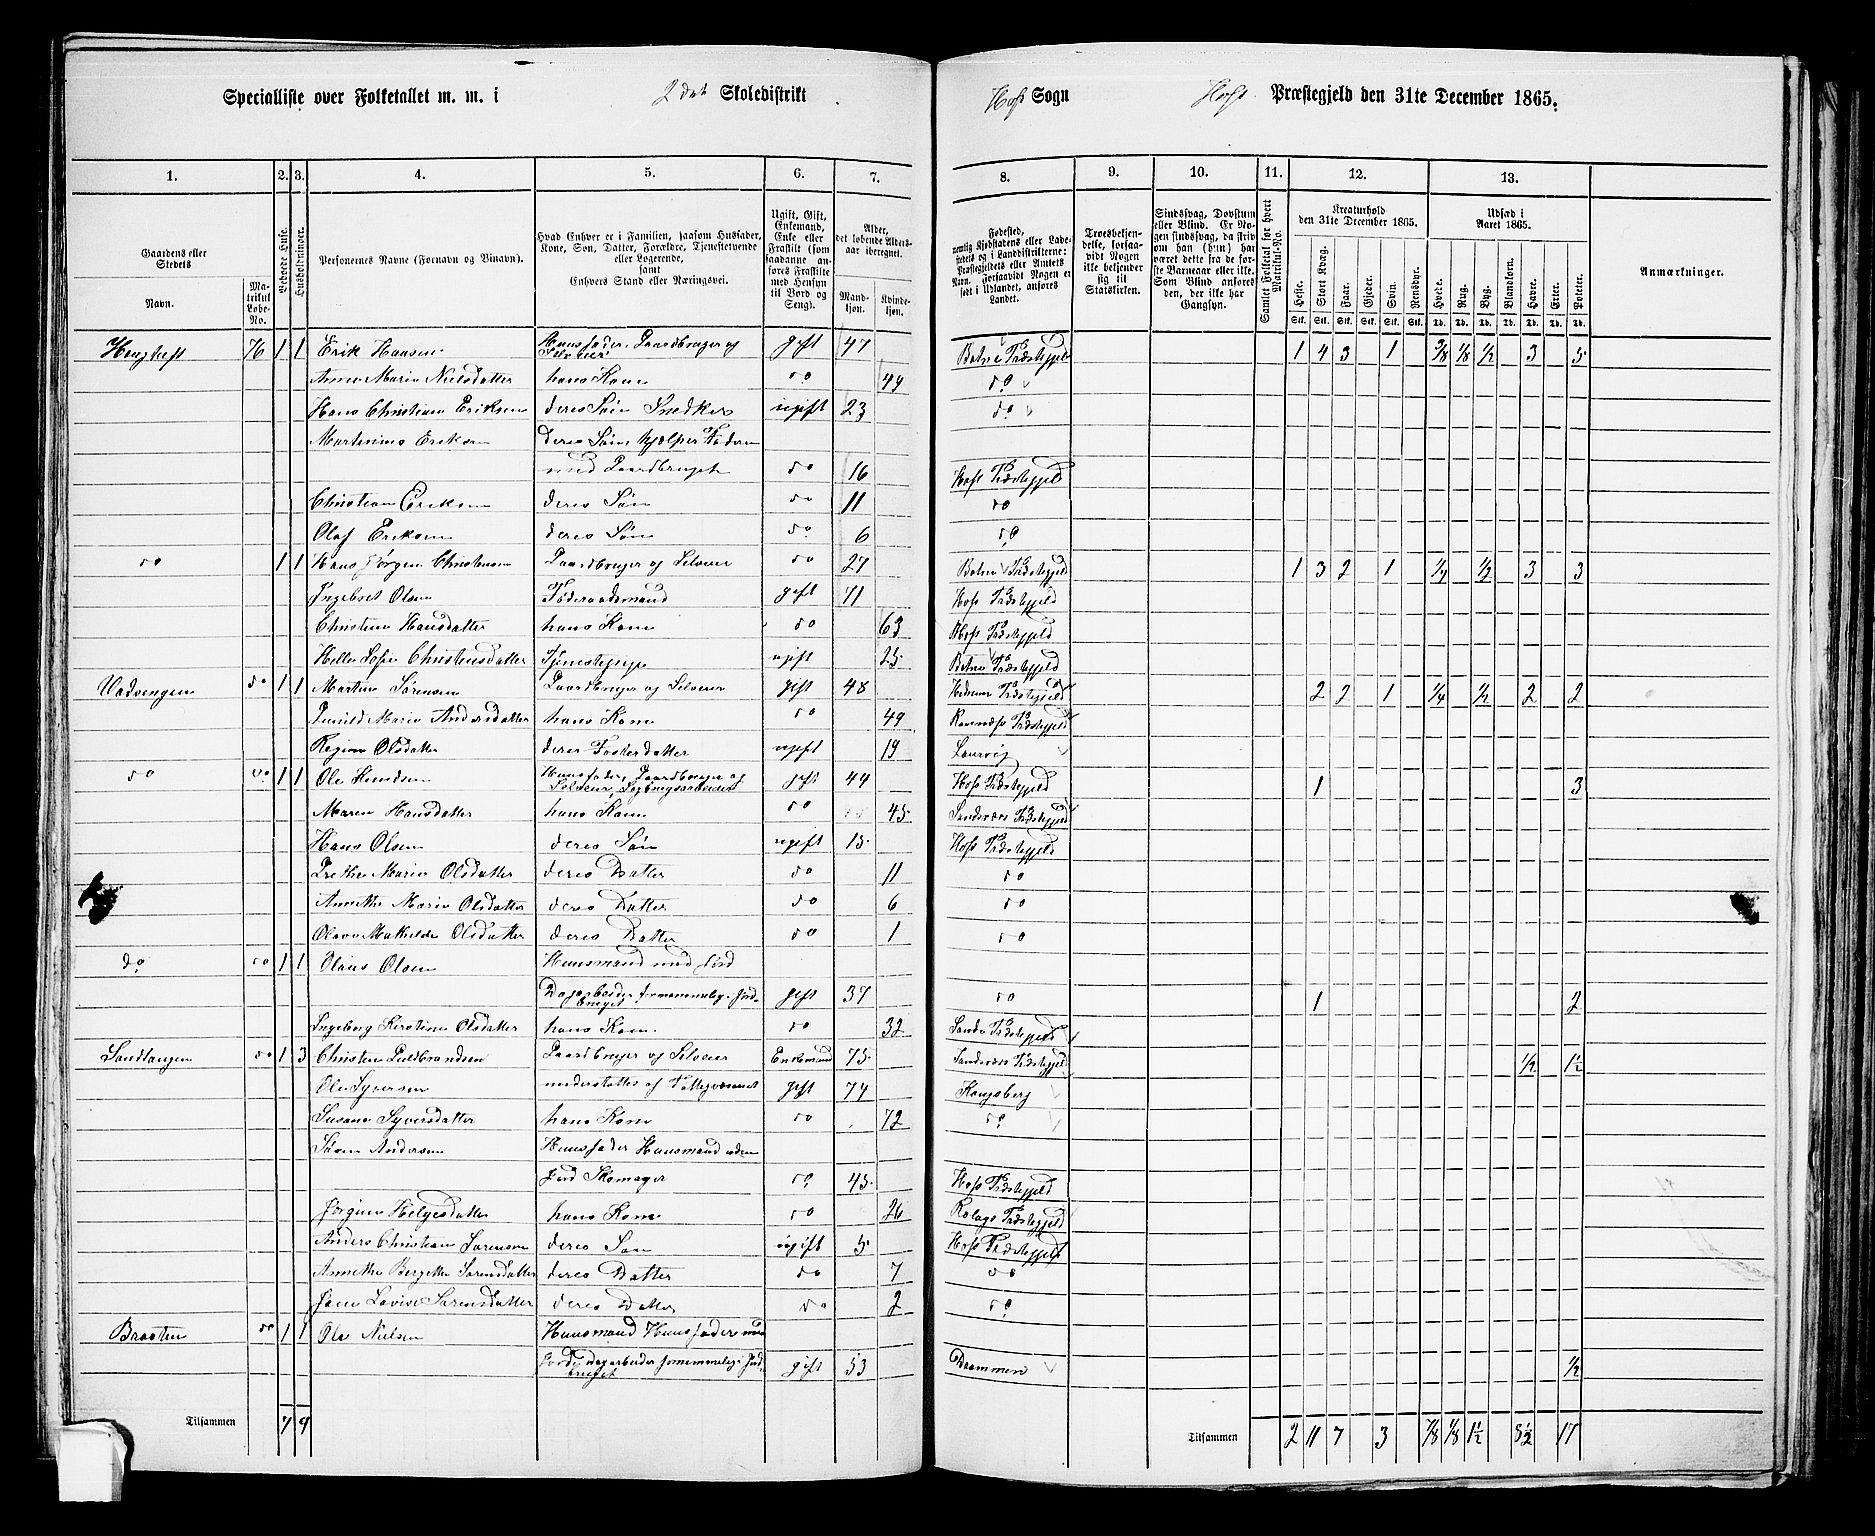 Specialliste over Folketallet m. m. i 2det Skoledistrikt
Hofs Sogn Hofs Præstegjeld den 31te December 1865.
1. 2. 3. 4. 5. 6. 7. 8. 9. 10. 11. 12. 13.
Gaardens eller Stedets
Navn.
Matrikul Løbe-No.
Beboede Huse.
Husholdninger.
Personernes Navne (Fornavn og Tilnavn).
Hvad Enhver er i Familien, saasom Husfader, Kone, Søn, Datter, Forældre, Tjenestetyende eller Logerende, samt Enhvers Stand eller Næringsvei.
Ugift, Gift, Enkemand, Enke eller Fraskilt (som saadanne anføres Fraskilte med Hensyn til Bord og Seng).
Alder, det løbende Alders-aar iberegnet.
Mandkjøn. Kvindekjøn.
Fødested,
Troesbekjendelse, forsaavidt Nogen ikke bekjender sig til Statskirken.
Sindssvag, Døvstum eller Blind.
Samlet Folketal for hvert Matrikul-No.
Kreaturhold den 31te December 1865.
Heste. Stort Kvæg. Faar. Gjeder. Svin. Rensdyr.
Udsæd i Aaret 1865.
Hvede. Rug. Byg. Blandkorn. Havre. Erter. Poteter.
Anmærkninger.
76 1 1 Erik Hansen Huusfader, Gaardbruger og Selveier gift 47 Botne Præstegjeld 1 4 3 1 3/8 1/8 1/2 3 5
Anne Marie Nielsdatter hans Kone do 49 do
Hans Christian Eriksen deres Søn Snedker ugift 23 do
Martinius Eriksen deres Søn hjelper Faderen
med Gaardbruget do 16 Hofs Præstegjeld
Christian Eriksen deres Søn do 11 do
Olaf Eriksen deres Søn do 6 do
do 1 1 Hans Jørgen Christensen Gaardbruger og Selveier do 27 Botne Præstegjeld 1 3 2 1 1/4 1/2 3 3
Ingebret Olsen Føderaadsmand gift 71 Hofs Præstegjeld
Christine Hansdatter hans Kone do 63 Hofs Præstegjeld
Helle Sofie Christensdatter Tjenestepige ugift 25 Botne Præstegjeld
do 1 1 Martin Sørensen Gaardbruger og Selveier gift 48 Hedrum Præstegjeld 2 2 1 1/4 1/2 2 2
Gunild Marie Andersdatter hans Kone do 49 Præstegjeld
Regine Olsdatter deres Fosterdatter ugift 19 Laurvig
do do 1 1 Ole Knudsen Huusfader, Gaardbruger og Selveier, gift 44 Hofs Præstegjeld 1 3
Maren Hansdatter hans Kone do 45 Sandsværs Præstegjeld
Hans Olsen deres Søn ugift 15 Hofs Præstegjeld
Grethe Marie Olsdatter deres Datter do 11 do
Annethe Marie Olsdatter deres Datter do 6 do
Olava Mathilde Olsdatter deres Datter do 1 do
do do 1 1 Olaus Olsen Huusmand med Jord
Dagarbeider fornemmelig i Jordbruget gift 37 do 1 2
Ingeborg Kirstine Olsdatter hans Kone do 32 Sande Præstegjeld
do 1 3 Christen Guldbrandsen Gaardbruger og Selveier Enkemand 75 Sandsværs Præstegjeld 1/2 1 1/2
Ole Syversen understøttes af Fattigvæsenet gift 74 Kongsberg
Susane Syversdatter hans Kone do 72 do
Søren Andersen Huusfader Huusmand uden
Jord Skomager do 45 Hofs Præstegjeld
Jørgine Helgesdatter hans Kone do 26 Rolags Præstegjeld
Anders Christian Sørensen deres Søn ugift 5 Hofs Præstegjeld
Annethe Bergethe Sørensdatter deres Datter do 7 do
Jane Lovise Sørensdatter deres Datter do 2 do
Braaten do 1 1 Ole Nielsen Huusmand Huusfader med
Jord, Dagarbeider fornemmelig i Jordbruget gift 53 Drammen 1/2
Tilsammen 7 9
Tilsammen 2 11 7 3 7/8 1/8 1 1/2 8 1/2 17